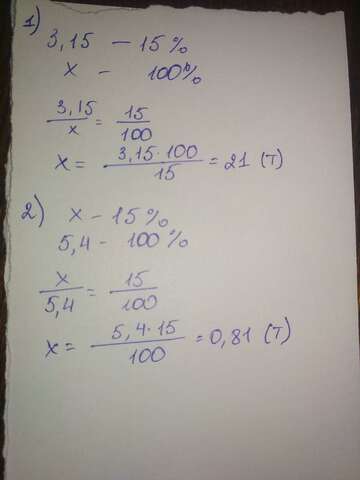 1)
3,15 — 15%
x — 100%
3,15/x = 15/100
x = 3,15·100/15 = 21 (т)
2) x – 15%
5,4 - 100%
x/5,4 = 15/100
x = 5,4·15/100 = 0,81 (т)